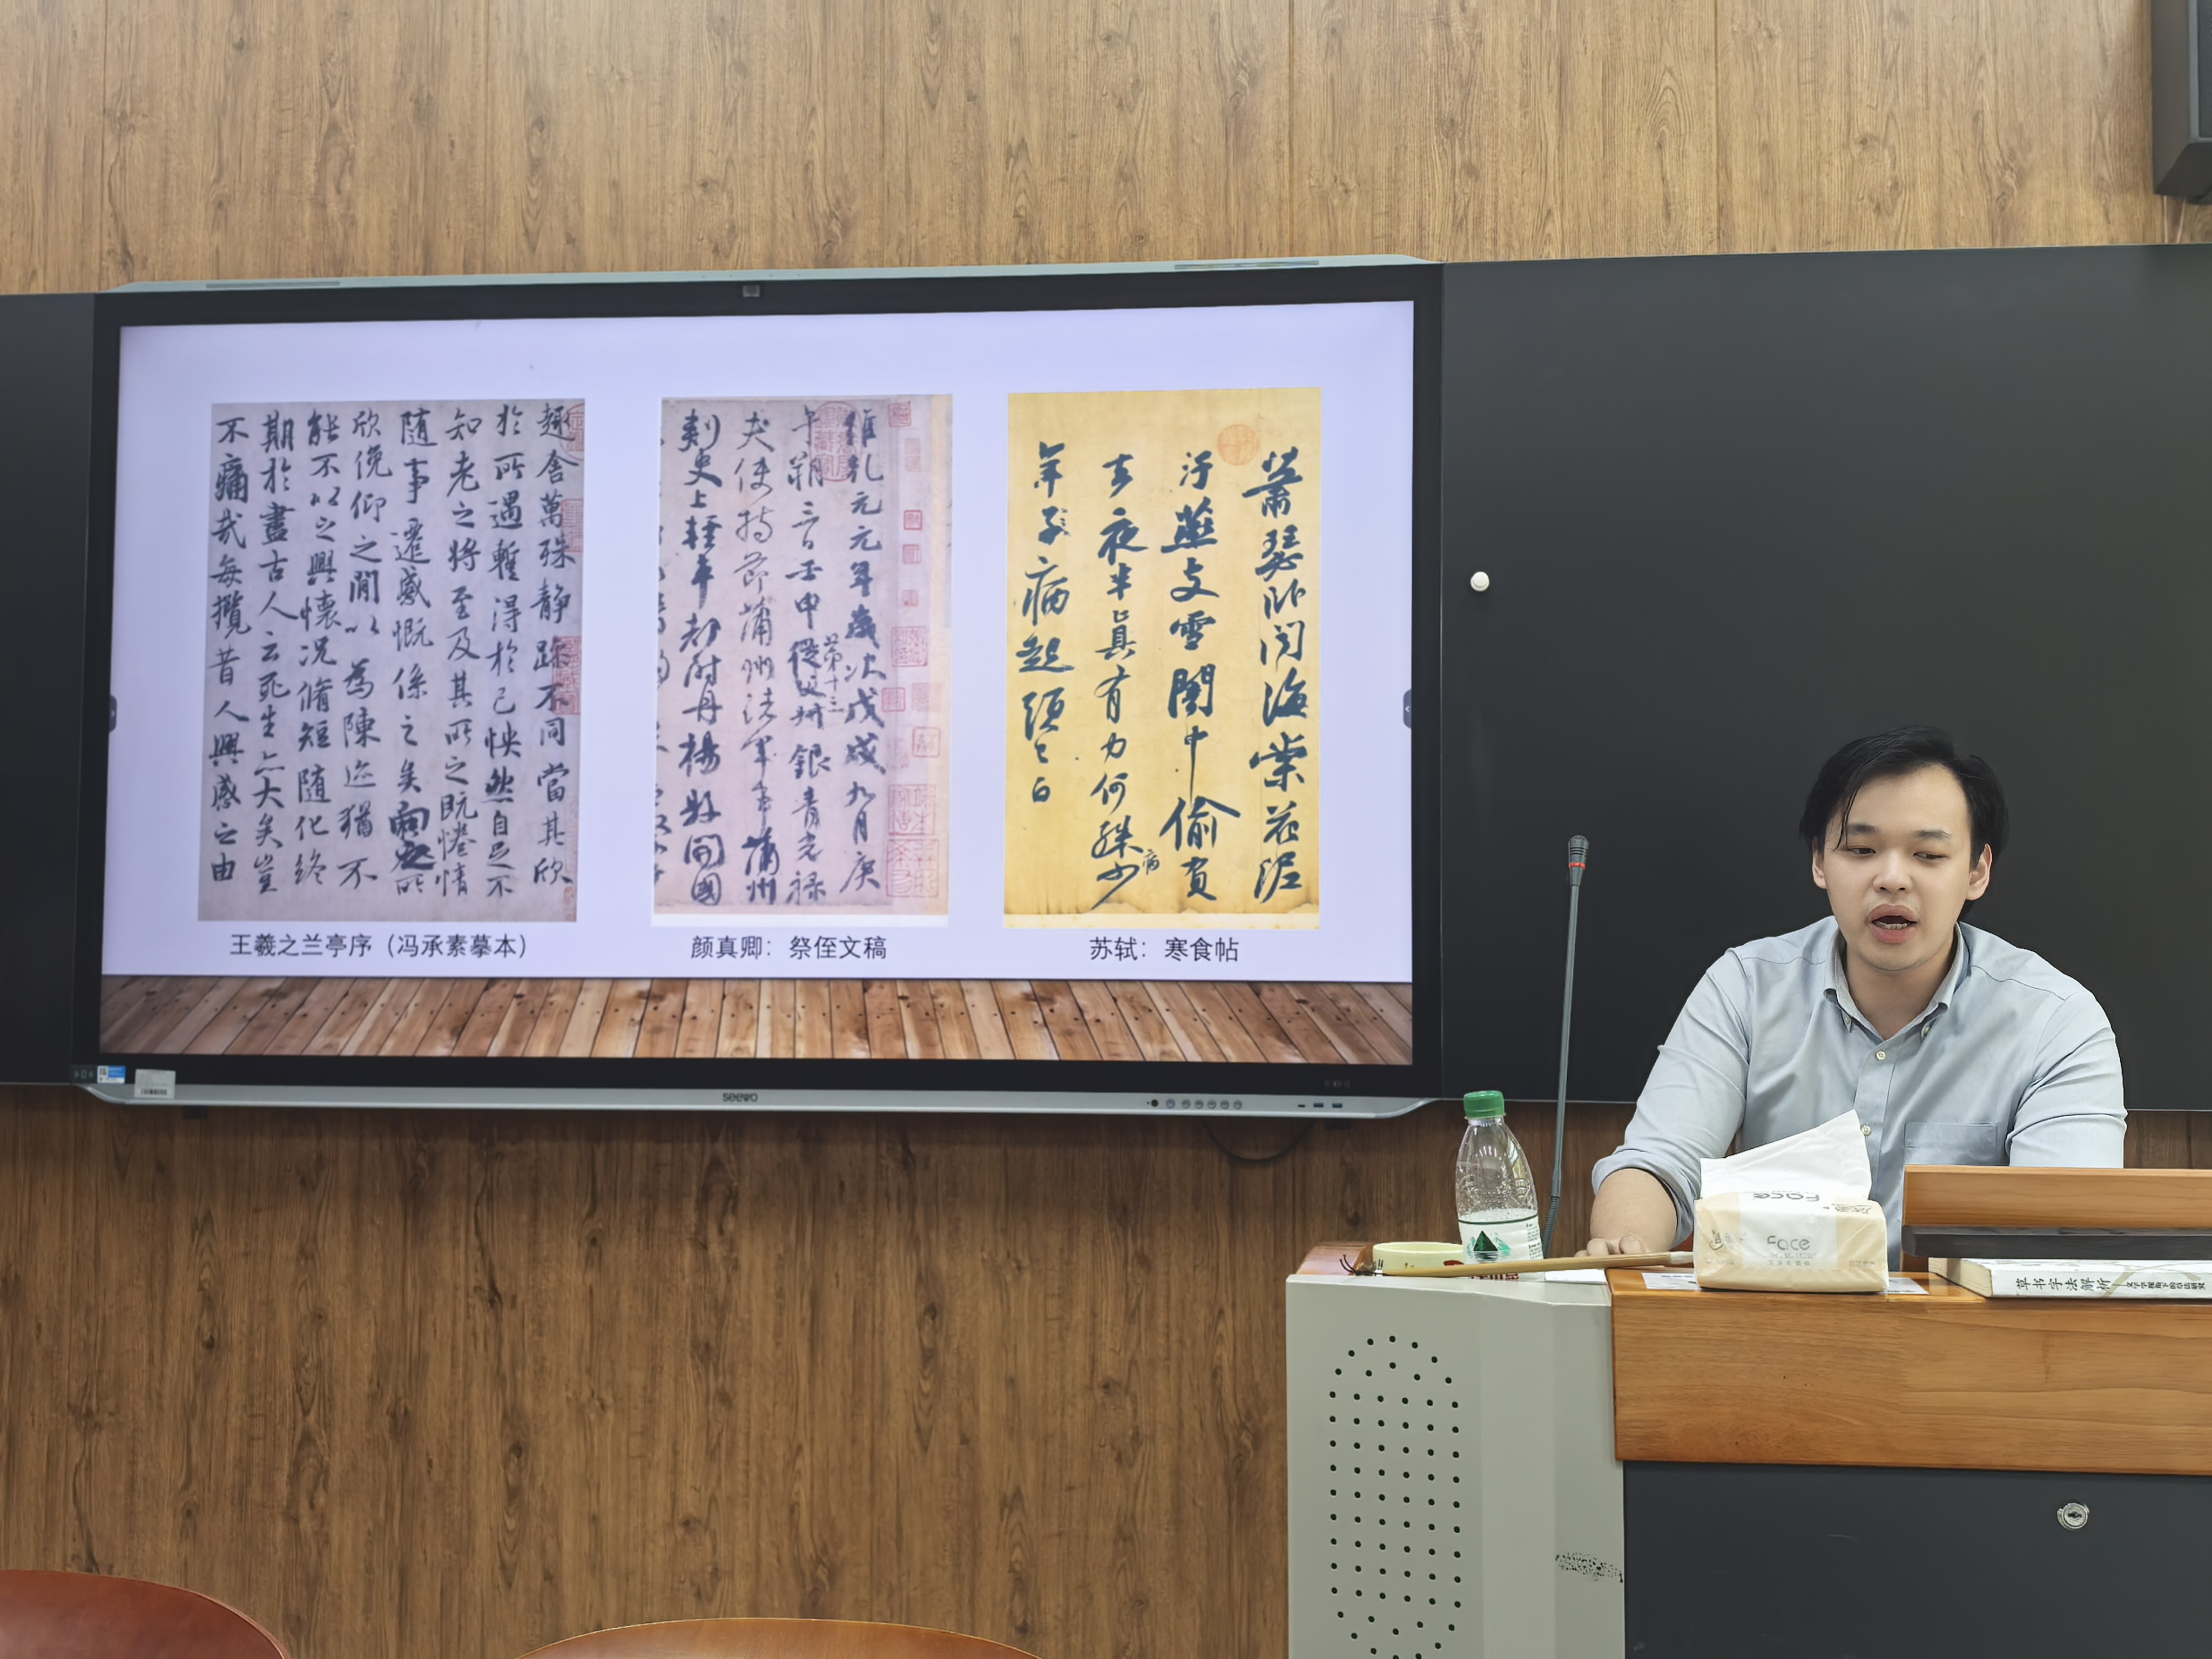 趣舍萬殊静躁不同當其欣
於所遇暫得於己怏然自足不
知老之將至及其所之既惓情
隨事遷感慨係之矣向之所
欣俛仰之閒以為陳迹猶不
能不以之興懷况脩短隨化終
期於盡古人云死生亦大矣豈
不痛哉每攬昔人興感之由
王羲之兰亭序（冯承素摹本）
維乾元元年歲次戊戌九月庚
午朔三日壬申第十三從父銀青光禄
夫使持節蒲州諸軍事蒲州
刺史上輕車都尉丹楊縣開國
颜真卿：祭侄文稿
蕭瑟卧聞海棠花泥
汙燕支雪闇中偷負
去夜半真有力何殊少
病
年子病起頭已白
苏轼：寒食帖
seewo
Face
Face
草书字法解析